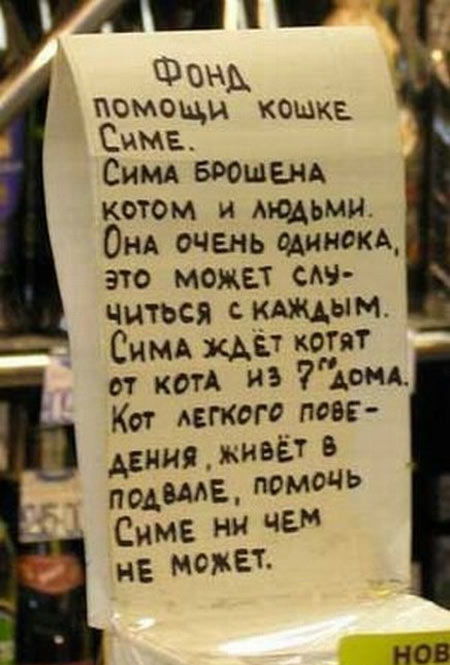 Фонд
помощи кошке
Симе.
Сима брошена
котом и людьми.
Она очень одинока,
это может слу-
читься с каждым.
Сима ждёт котят
от кота из 7го дома.
Кот легкого пове-
дения, живёт в
подвале, помочь
Симе ни чем
не может.
НОВ